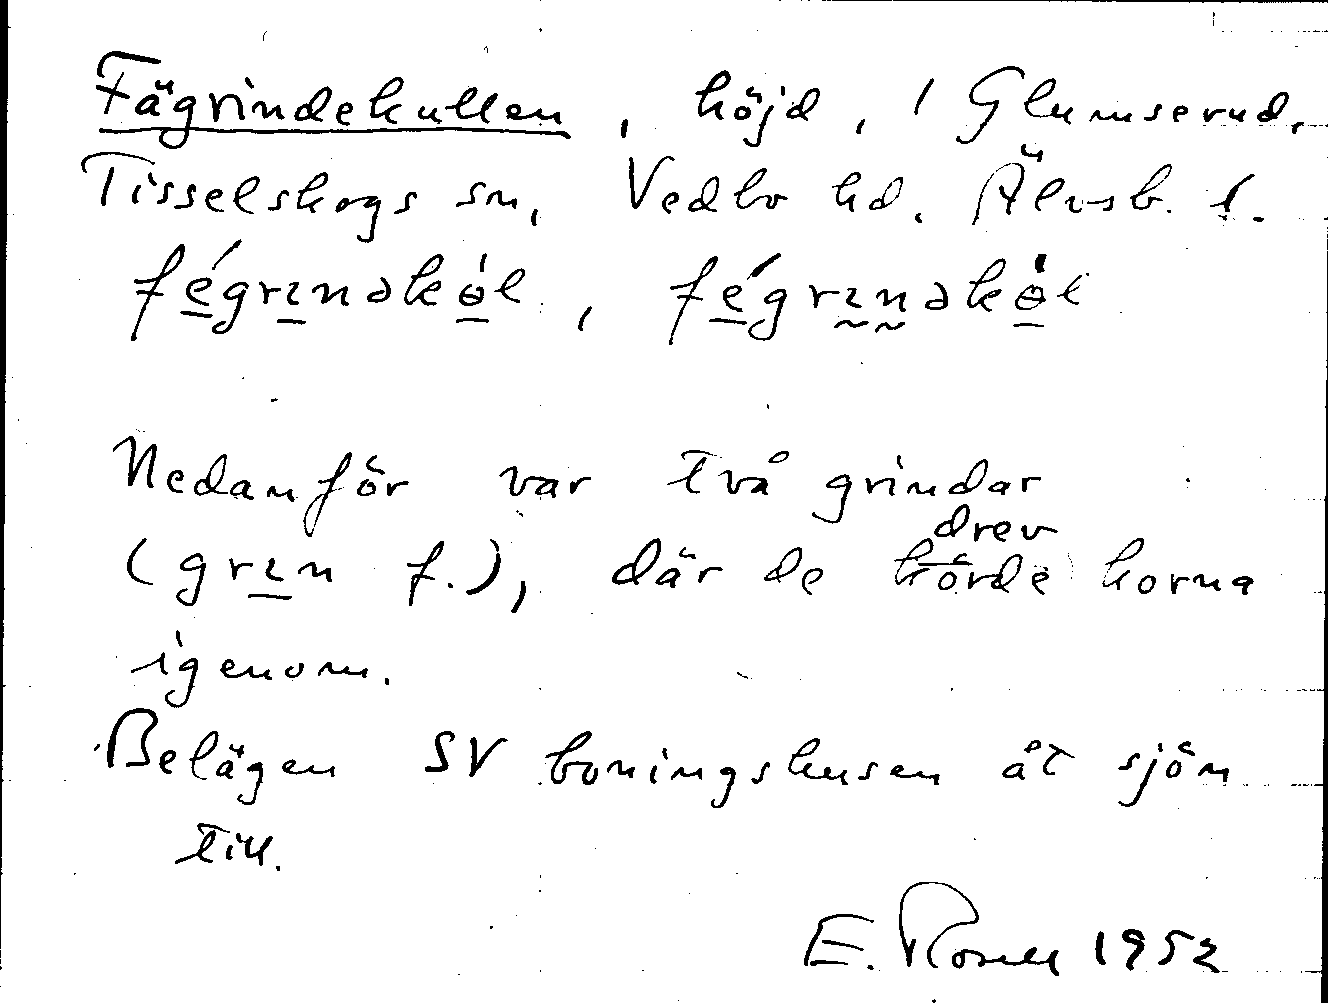 Fägrindekullen, höjd, i Glumserud,
Tisselskogs sn, Vedbo hd. Älvsb. l.
fé̱grɪ̱nəkө̱̍l, fé̱grɪ̰n̰əkө̱̍l
Nedanför var två grindar
drev
(grɪ̱n f.), där de körde korna
igenom.
Belägen SV boningshusen åt sjön
till.
E. Rosell 1952